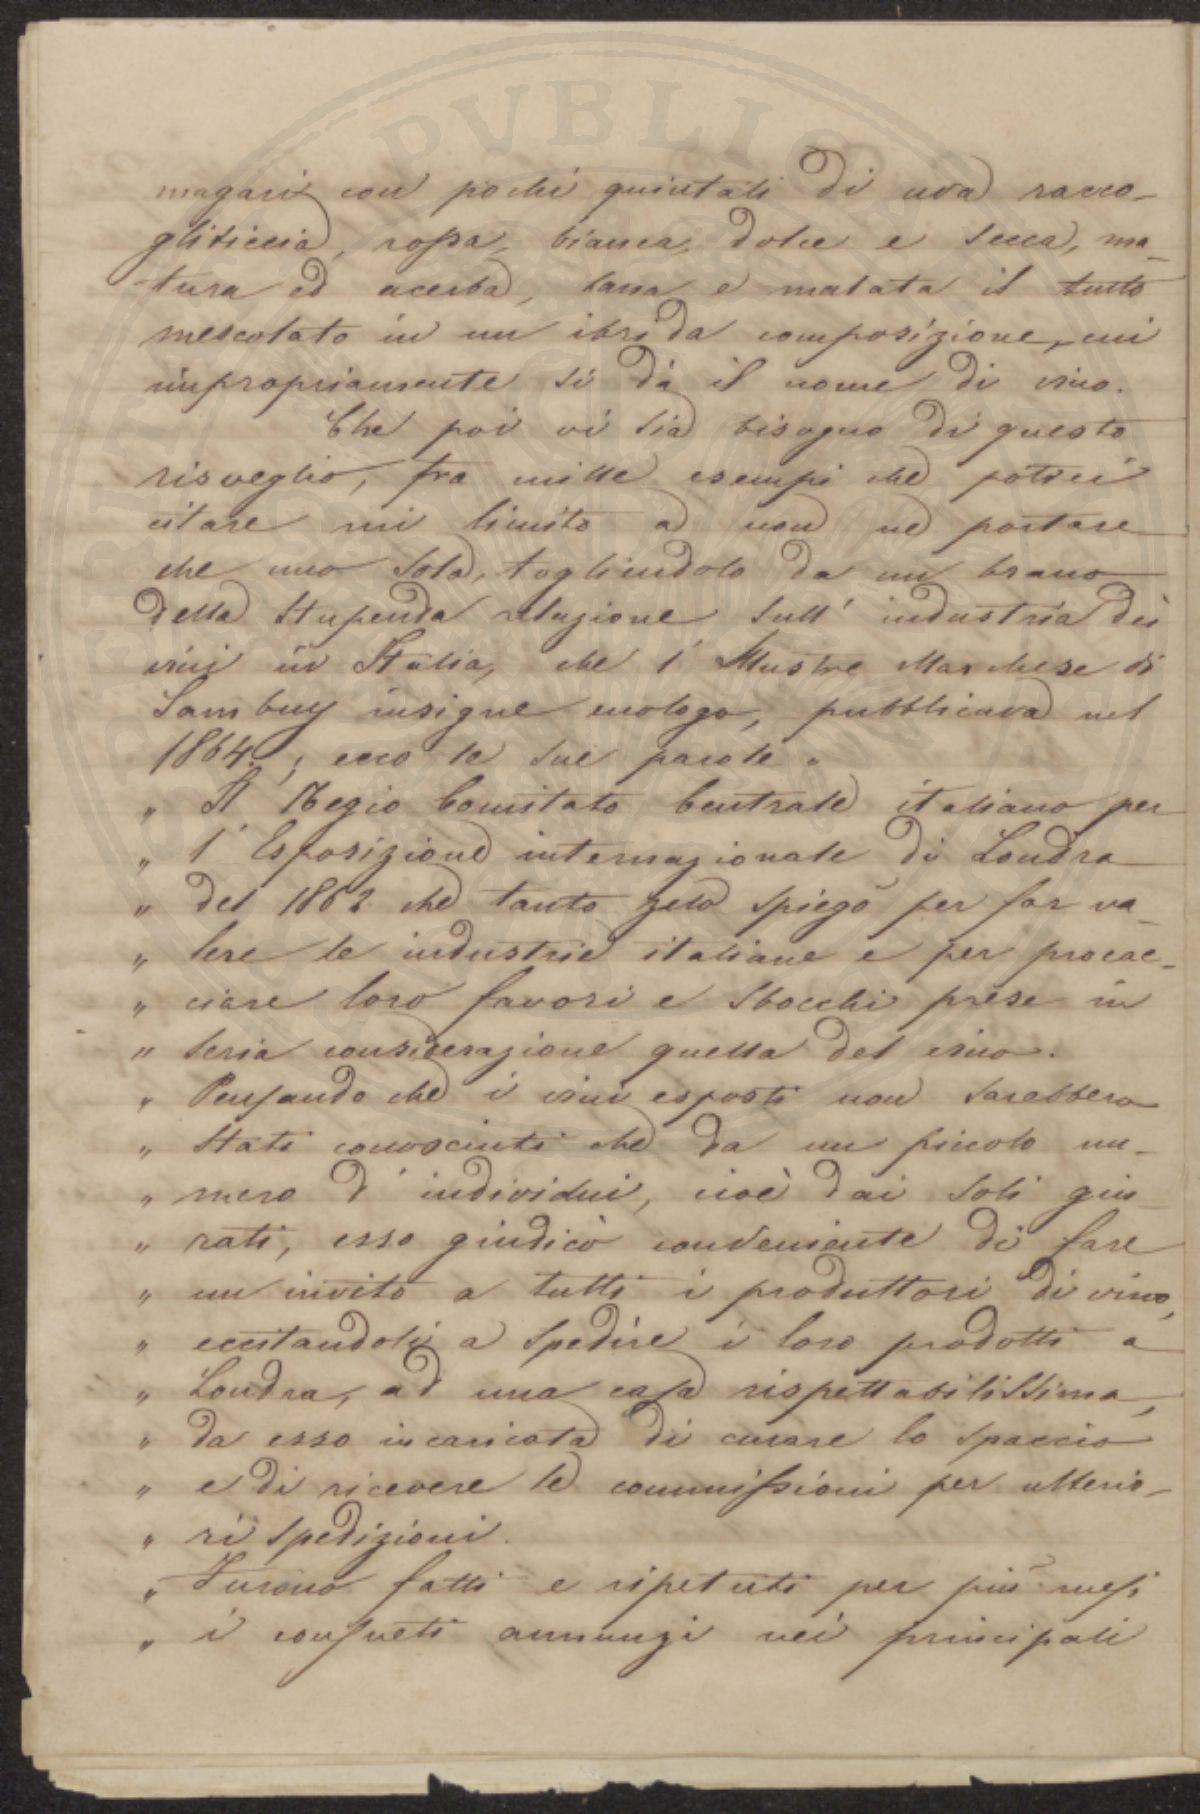 magari con pochi quintali di uva racco-
gliticcia, rossa, bianca, dolce e secca, ma-
tura ed acerba, sana e malata il tutto
mescolato in un ibrida composizione, cui
impropriamente si dà il nome di vino.
Che poi vi sia bisogno di questo
risveglio, fra mille esempi che potrei
citare mi limito a non ne portare
che uno solo, togliendolo da un brano
della stupenda relazione sull' industria dei
vini in Italia, che l' Illustre Marchese di
Sambuy insigne enologo, pubblicava nel
1864.; ecco le sue parole.
" Il Regio Comitato Centrale italiano per
" l' Esposizione internazionale di Londra
" del 1862 che tanto zelo spiegò per far va-
" lere le industrie italiane e per procac-
" ciare loro favori e sbocchi prese in
" seria considerazione quella del vino.
" Pensando che i vini esposti non sarebbero
" stati conosciuti che da un piccolo nu-
" mero d' individui, cioè dai soli giu-
" rati, esso giudicò conveniente di fare
" un invito a tutti i produttori di vino,
" eccitandoli a spedire i loro prodotti a
" Londra, ad una casa rispettabilissima,
" da esso incaricata di curare lo spaccio
" e di ricevere le commissioni per ulterio-
" ri spedizioni.
" Furono fatti e ripetuti per più mesi
" i consueti annunzi nei principali
PVBLICA